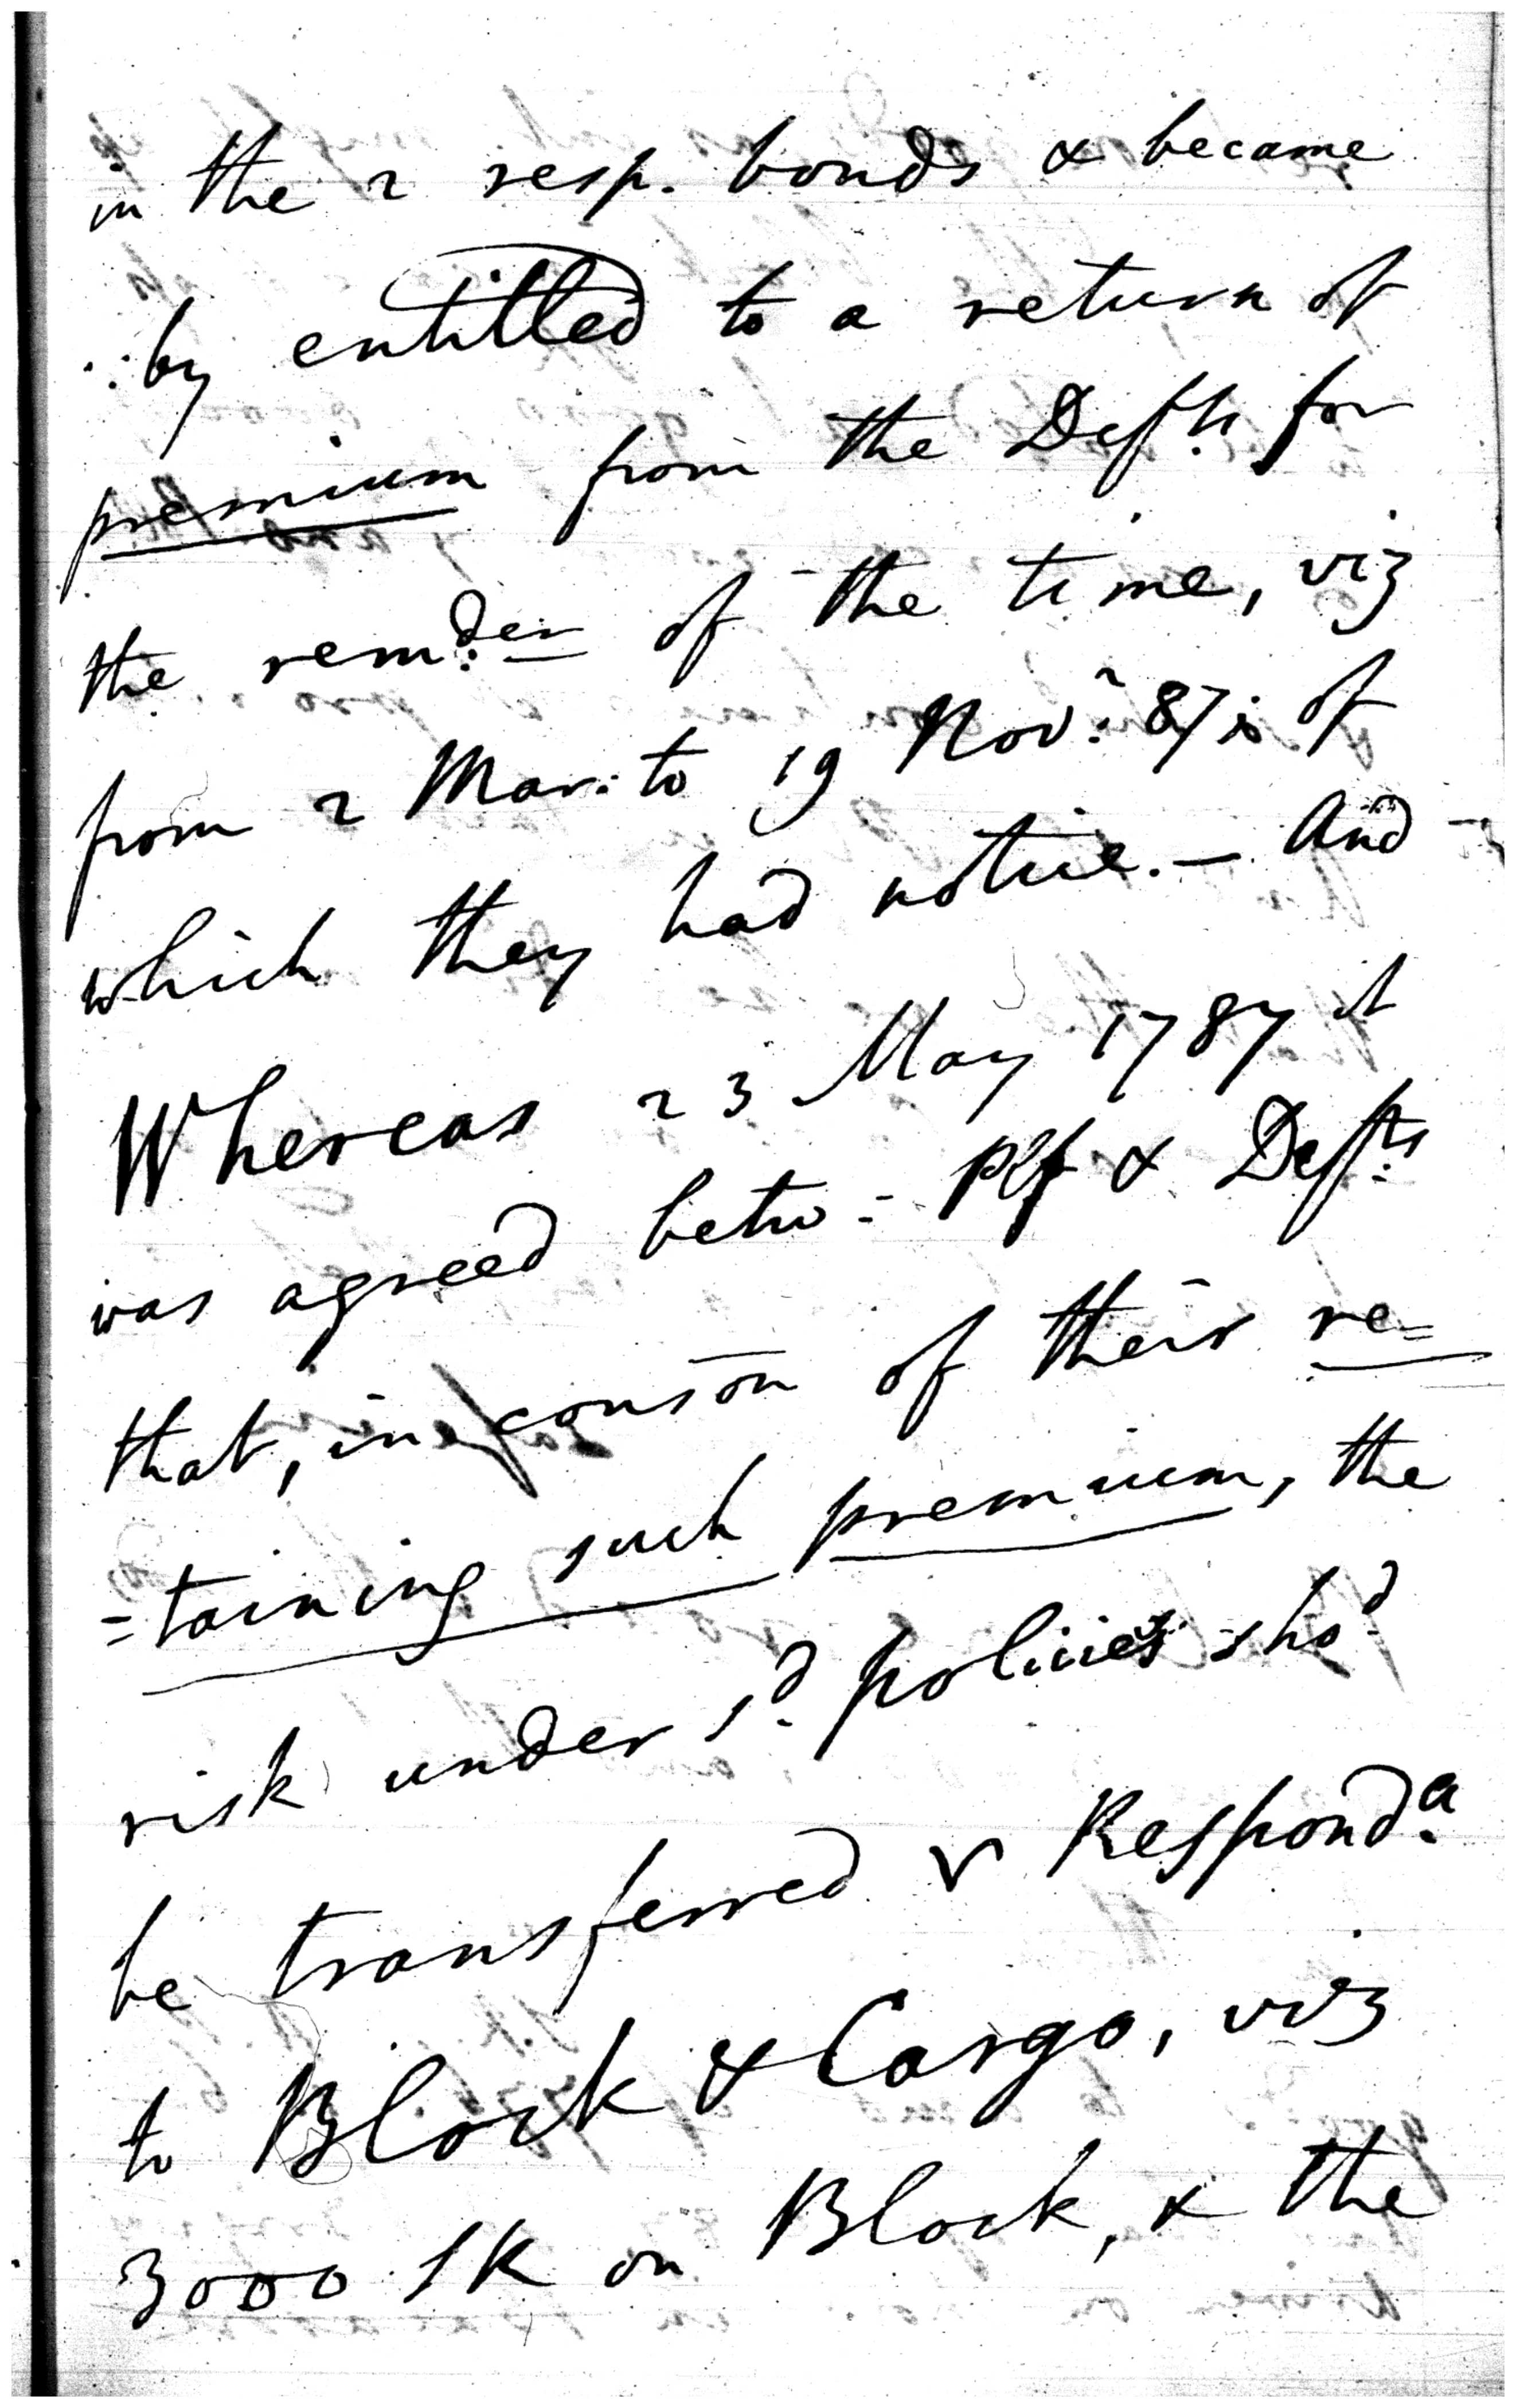 in the 2 resp. bonds & become
∴by entitled to a return of
premium from the Defts. for
the rem:der of the time, viz
from 2 Mar: to 19 Nov:r 87; of
which they had notice. — And
Whereas 23 May 1787 it
was agreed betw: Plf & Defts.
that, in conson of their re=
=taining such premium, the
risk under sd. policies shod.
be transferred Respond.a
to Block & Cargo, viz
3000 SR on Block, & the